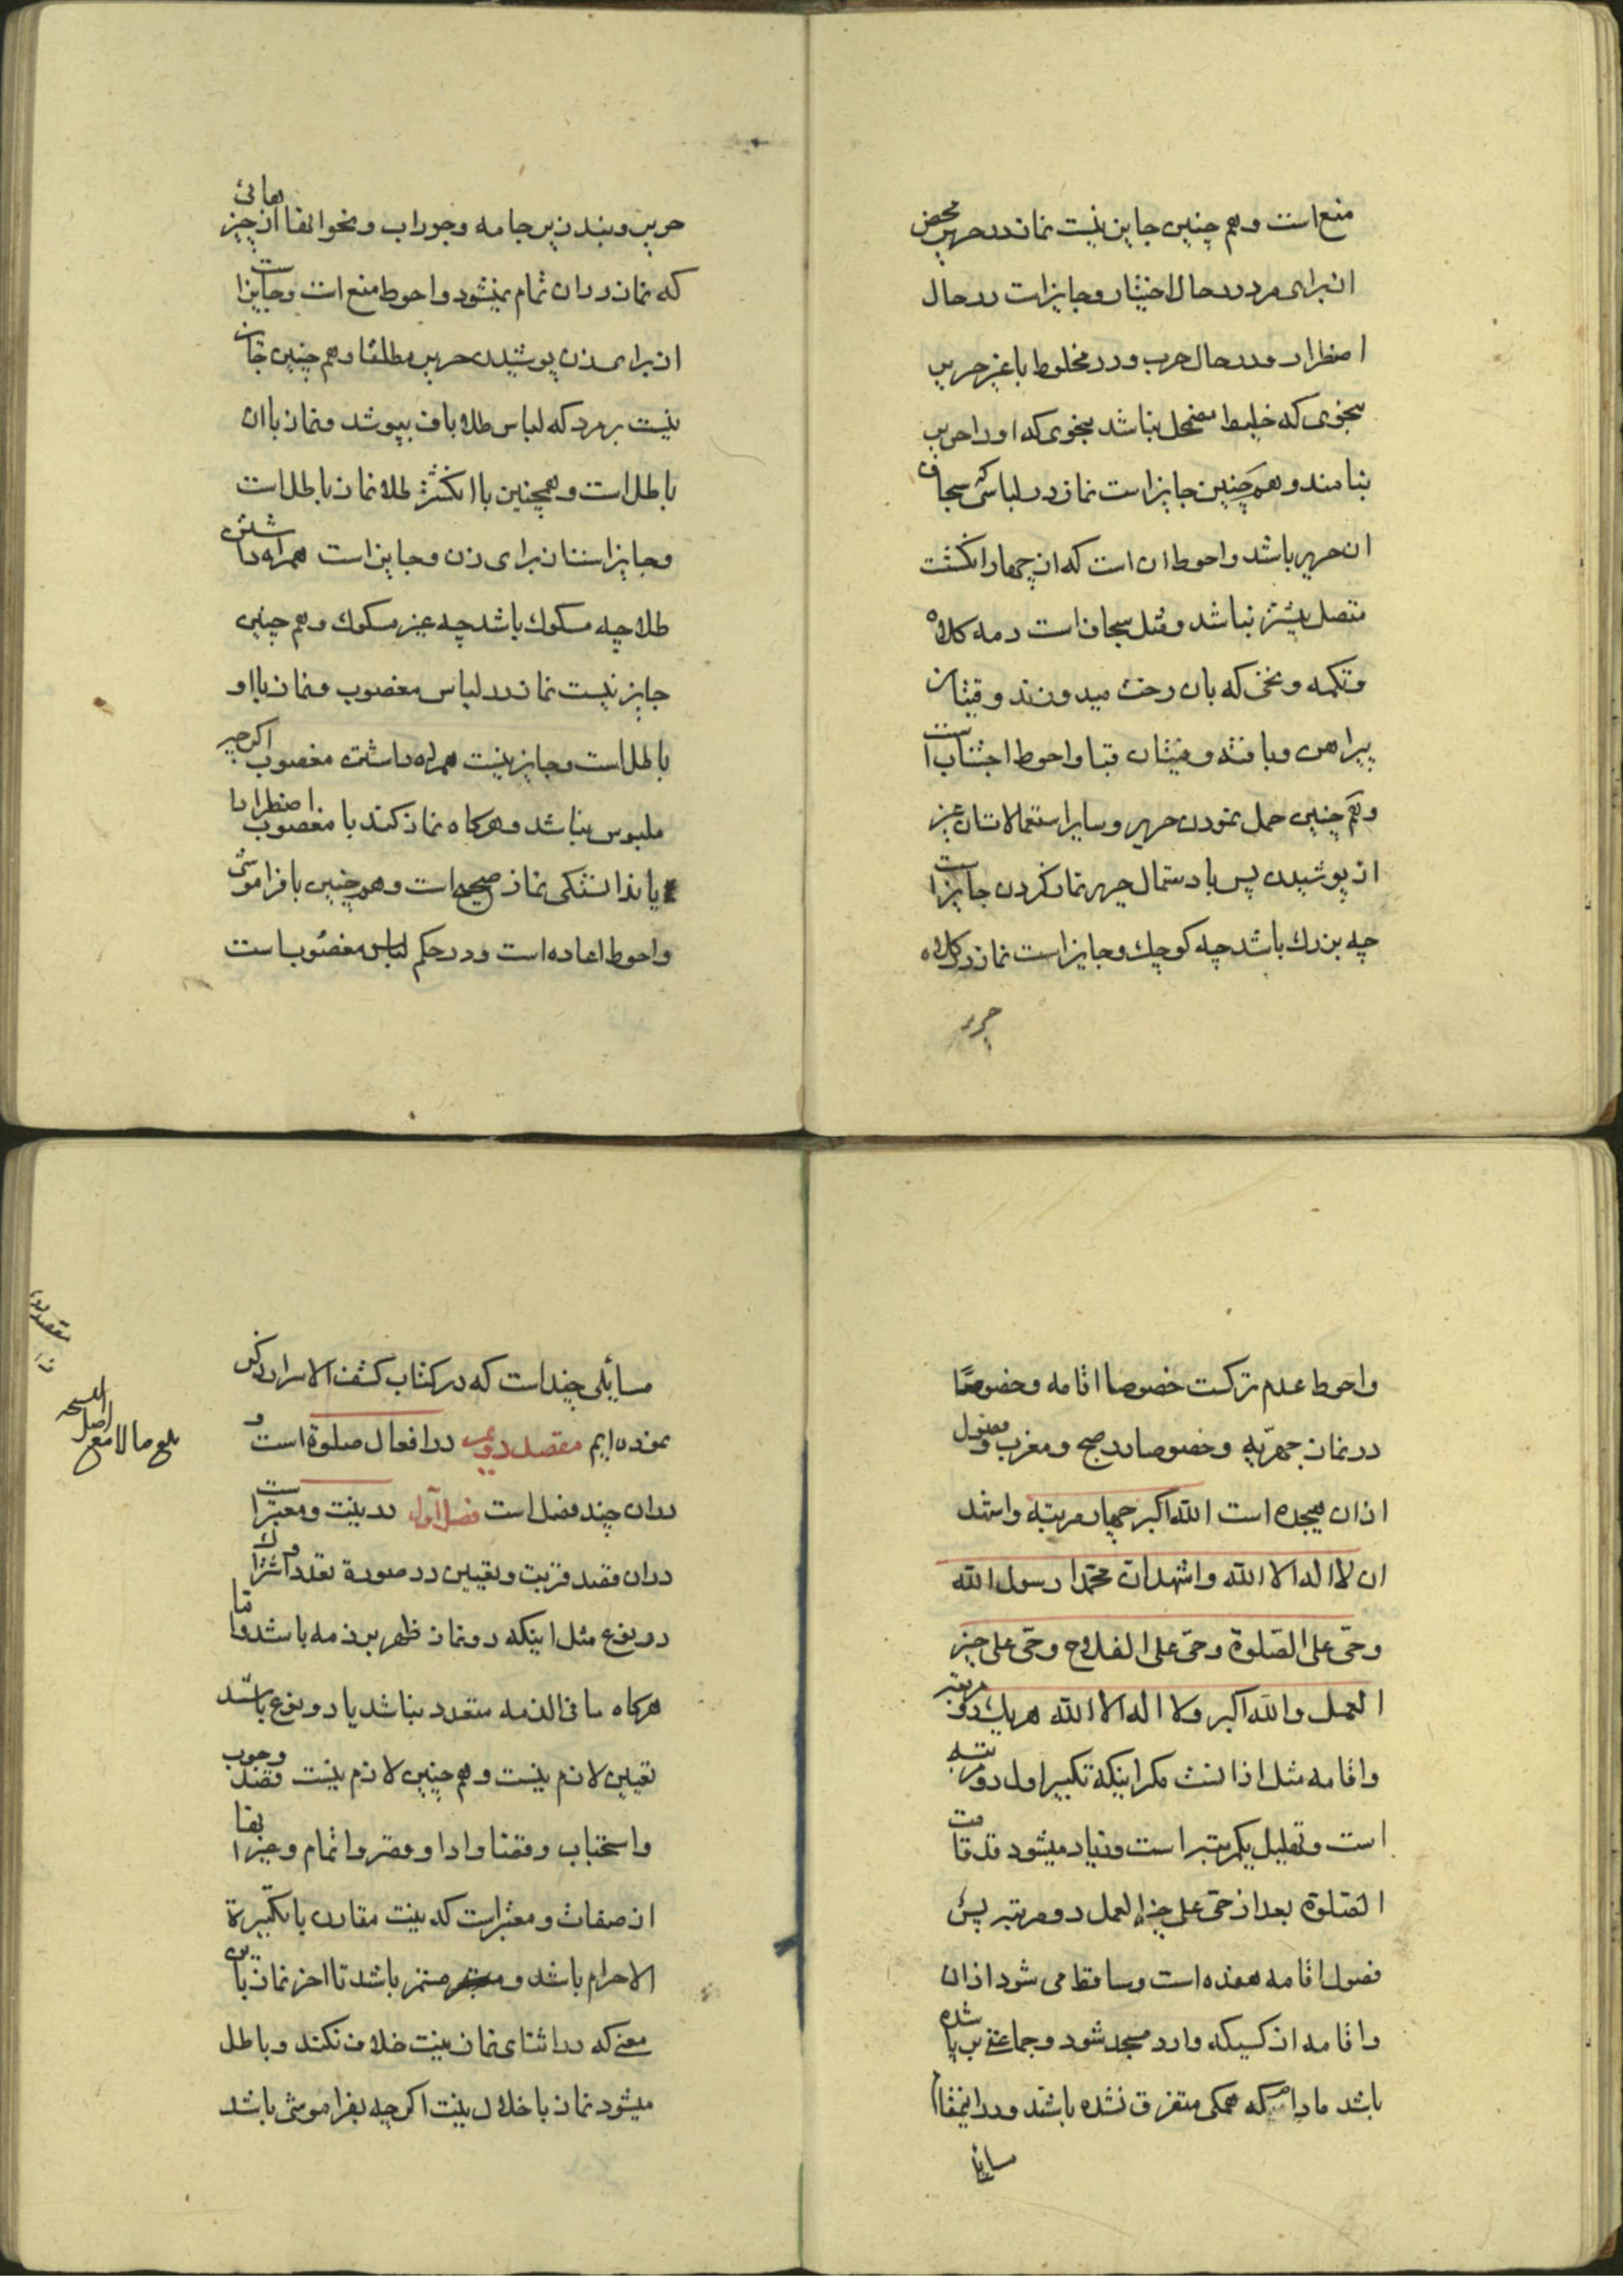 منع است و هم چنین جایز نیست نماز در حریر محض
از برای مرد در حال اختیار و جایز است در حال
اضطرار و در حال حرب و در مخلوط با غیر حریر
بنحوی که خلیط مضمحل نباشد بنحوی که او را حریر
بنامند و هم چنین جایز است نماز در لباسی که سجاف
ان حریر باشد و احوط ان است که از چهار انکشت
متصل بیشتر نباشد و مثل سجاف است دمه کلاه
و تکمه و نخی که بان رخت میدوزند و قیتان
پیراهن و بافته و قیتان قبا و احوط اجتناب است
و هم چنین حمل نمودن حریر و سایر استعمالات ان غیر
از پوشیدن پس با دستمال حریر نماز کردن جایز است
چه بزرك باشد چه کوچك و جایز است نماز در کلاه
حریر
حریر و بند زیر جامه و جوراب و نحو انها از چیزهائی
که نماز در ان تمام نمیشود و احوط منع است و جایز است
از برای زن پوشیدن حریر مطلقا و هم چنین جایز
نیست بر مرد که لباس طلا باف بپوشد و نماز با ان
باطل است و همچنین با انکشتر طلا نماز باطل است
و جایز است از برای زن و جایز است همراه داشتن
طلا چه مسکوك باشد چه غیر مسکوك و هم چنین
جایز نیست نماز در لباس مغصوب و نماز با او
باطل است و جایز نیست همراه داشتن مغصوب اکر چه
ملبوس نباشد و هرکاه نماز کند با مغصوب اضطرارا
یا ندانستکی نماز صحیح است و هم چنین با فراموشی
و احوط اعاده است و در حکم لباس مغصوب است
و احوط عدم ترکست خصوصا اقامه و خصوصًا
در نماز جهریّه و خصوصا در صبح و مغرب و فصول
اذان هیجده است الله اکبر چهار مرتبه و اشهد
ان لا اله الا الله و اشهد ان محمّدا رسول الله
و حیّ علی الصّلوة و حیّ علی الفلاح و حیّ علی خیر
العمل و الله اکبر و لا اله الا الله هر یك دو مرتبه
و اقامه مثل اذانست مکر اینکه تکبیر اول دو مرتبه
است و تهلیل یکمرتبه است و زیاد میشود قد قامت
الصّلوة بعد از حیّ علی خیر العمل دو مرتبه پس
فصول اقامه هفده است و ساقط می شود اذان
و اقامه از کسیکه وارد مسجد شود و جماعتی بر پا شده
باشد مادامیکه همکی متفرق نشده باشند و در اینمقام
مسایل
مسایلی چند است که در کتاب کشف الاسرار ذکر
نموده ایم مقصد دویم در افعال صلوة است و
در ان چند فصل است فصل اوّل در نیت و معتبر است
در ان قصد قربت و تعیین در صورة تعدد و اشتراك
در نوع مثل اینکه دو نماز ظهر بر ذمه باشد و اما
هرکاه ما فی الذمه متعدد نباشد یا دو نوع باشد
تعیین لازم نیست و هم چنین لازم نیست قصد وجوب
و استحباب و قضا و ادا و قصر و اتمام و غیر انها
از صفات و معتبر است که نیت مقارن با تکبیرة
الاحرام باشد و مستمر باشد تا اخر نماز باین
معنی که در اثنای نماز نیت خلاف نکند و باطل
میشود نماز با خلال نیت اکر چه بفراموشی باشد
مقصد دوم
بلغ مقابلا مع
اصل